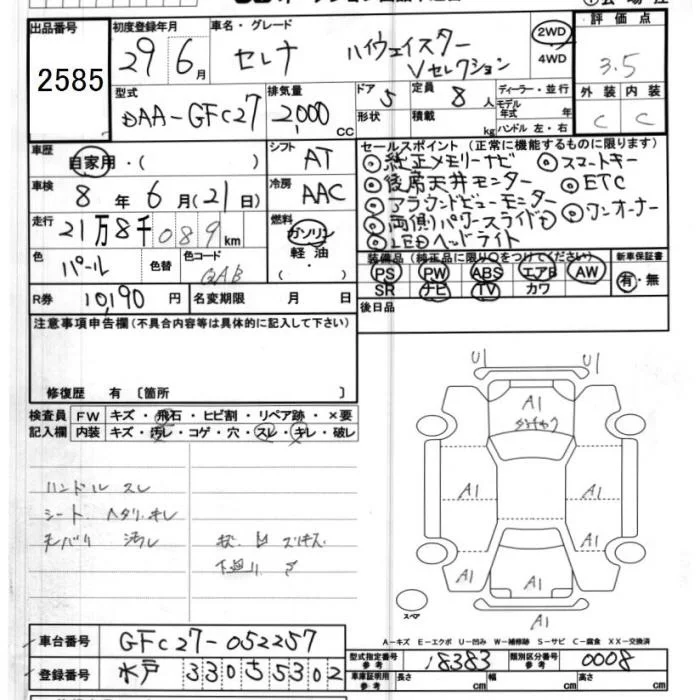 出品番号 初度登録年月 車名・グレード 評価点
2585 29年6月 セレナ ハイウェイスター Vセレクション 2WD 4WD 3.5
外装 内装
C C
型式 排気量 ドア 定員 ディーラー・並行
DAA-GFC27 2,000 CC 5 8人 モデル年式 年
形状 積載 kg ハンドル 左・右
車歴 自家用・( ) シフト AT
車検 8年6月(21日) 冷房 AAC
走行 21万8千089km 燃料 ガソリン 軽油 ・( )
色 パール 色替 色コード QAB
R券 10,190円 名変期限 月 日
セールスポイント(正常に機能するものに限ります)
◎純正メモリーナビ ◎スマートキー
◎後席天井モニター ◎ETC
◎アラウンドビューモニター ◎ワンオーナー
◎両側パワースライドD
◎LEDヘッドライト
装備品(純正品に限り○をつけてください) 新車保証書
PS PW ABS エアB AW 有・無
SR ナビ TV カワ
後日品
注意事項申告欄(不具合内容等は具体的に記入して下さい)
修復歴 有 〔箇所 〕
検査員 FW キズ・飛石・ヒビ割・リペア跡・×要
記入欄 内装 キズ・汚レ・コゲ・穴・スレ・キレ・破レ
ハンドル スレ
シート ヘタリ、キレ
下廻り サ
U1 U1
A1
A1 A1
A1 A1
A1
A1
スペア
A-キズ E-エクボ U-凹み W-補修跡 S-サビ C-腐食 XX-交換済
車台番号 GFC27-052257
登録番号 水戸 330 5 5302
型式指定番号 参考 18383 類別区分番号 参考 0008
車庫証明用 参考 長さ cm 幅 cm 高さ cm